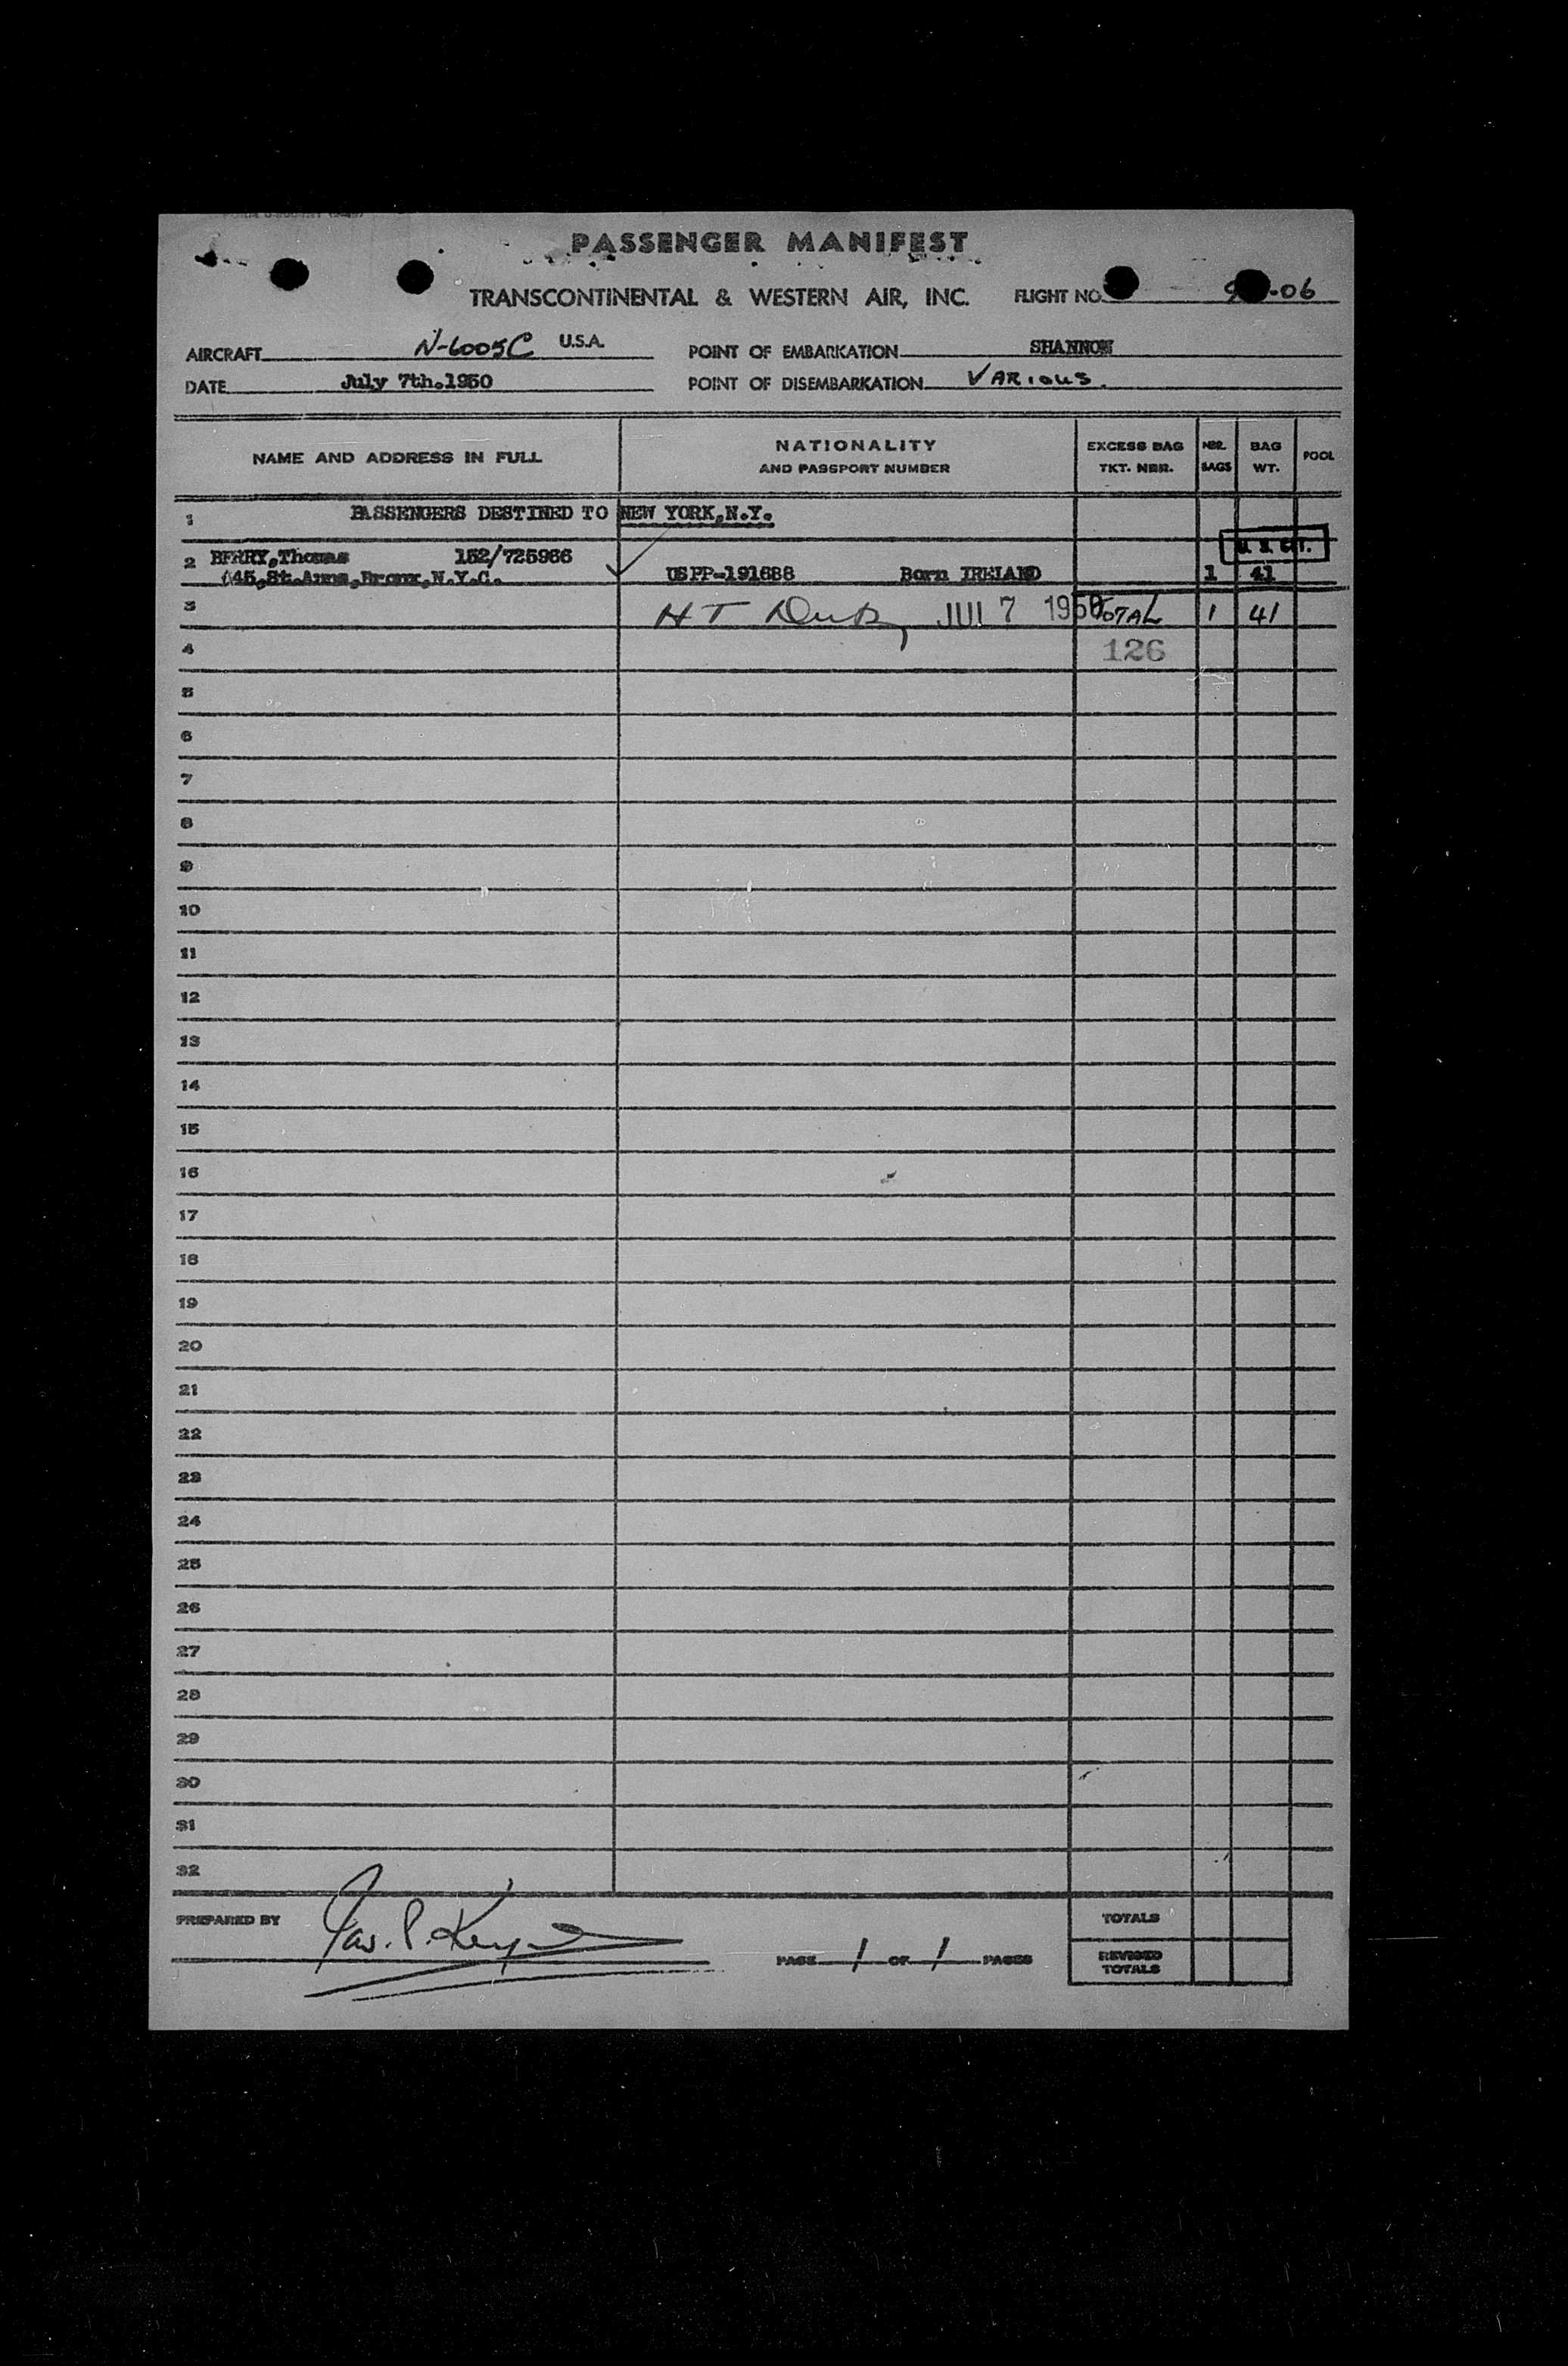 PASSENGER MANIFEST
TRANSCONTINENTAL & WESTERN AIR, INC. FLIGHT NO. -06
AIRCRAFT N-6005C U.S.A. POINT OF EMBARKATION SHANNON
DATE July 7th.1950 POINT OF DISEMBARKATION VARIOUS.
NAME AND ADDRESS IN FULL NATIONALITY AND PASSPORT NUMBER EXCESS BAG TKT. NBR. NBR. BAGS BAG WT. POOL
1 PASSENGERS DESTINED TO NEW YORK,N.Y.
U.S. CIT.
2 BERRY,Thomas 152/725986
45,St.Anns,Bronx,N.Y.C. USPP-191688 Born IRELAND 1 41
3 JUL 7 1950 TOTAL 1 41
4 126
5
6
7
8
9
10
11
12
13
14
15
16
17
18
19
20
21
22
23
24
25
26
27
28
29
30
31
32
PREPARED BY TOTALS
PAGE 1 OF 1 PAGES REVISED TOTALS